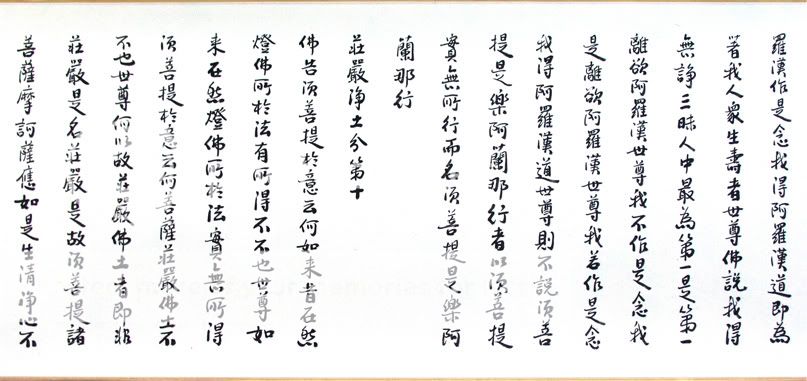 羅漢作是念我得阿羅漢道即為
著我人衆生壽者世尊佛說我得
無諍三昧人中最為第一是第一
離欲阿羅漢世尊我不作是念我
是離欲阿羅漢世尊我若作是念
我得阿羅漢道世尊則不說須菩
提是樂阿蘭那行者以須菩提
實無所行而名須菩提是樂阿
蘭那行
莊嚴淨土分第十
佛告須菩提於意云何如来昔在然
燈佛所於法有所得不不也世尊如
来在然燈佛所於法實無所得
須菩提於意云何菩薩莊嚴佛土不
不也世尊何以故莊嚴佛土者即非
莊嚴是名莊嚴是故須菩提諸
菩薩摩訶薩應如是生清淨心不